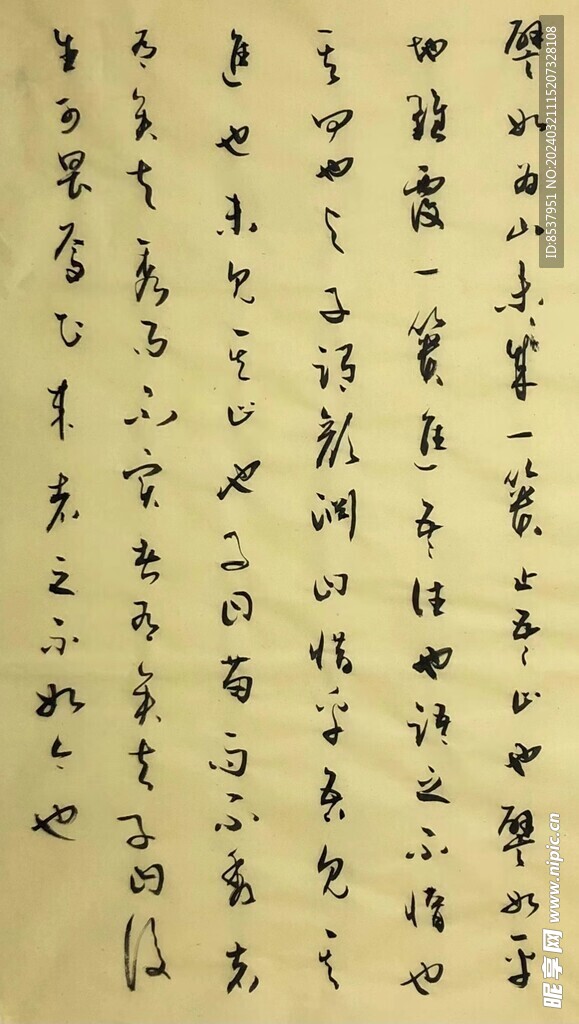 譬如為山未成一簣止吾止也譬如平
地雖覆一簣進吾往也語之不惰也
其回也与子謂顏淵曰惜乎吾見其
進也未見其止也子曰苗而不秀者
有矣夫秀而不實者有矣夫子曰後
生可畏焉知來者之不如今也
ID:8537951 NO:20240321115207328108
昵享网 www.nipic.cn